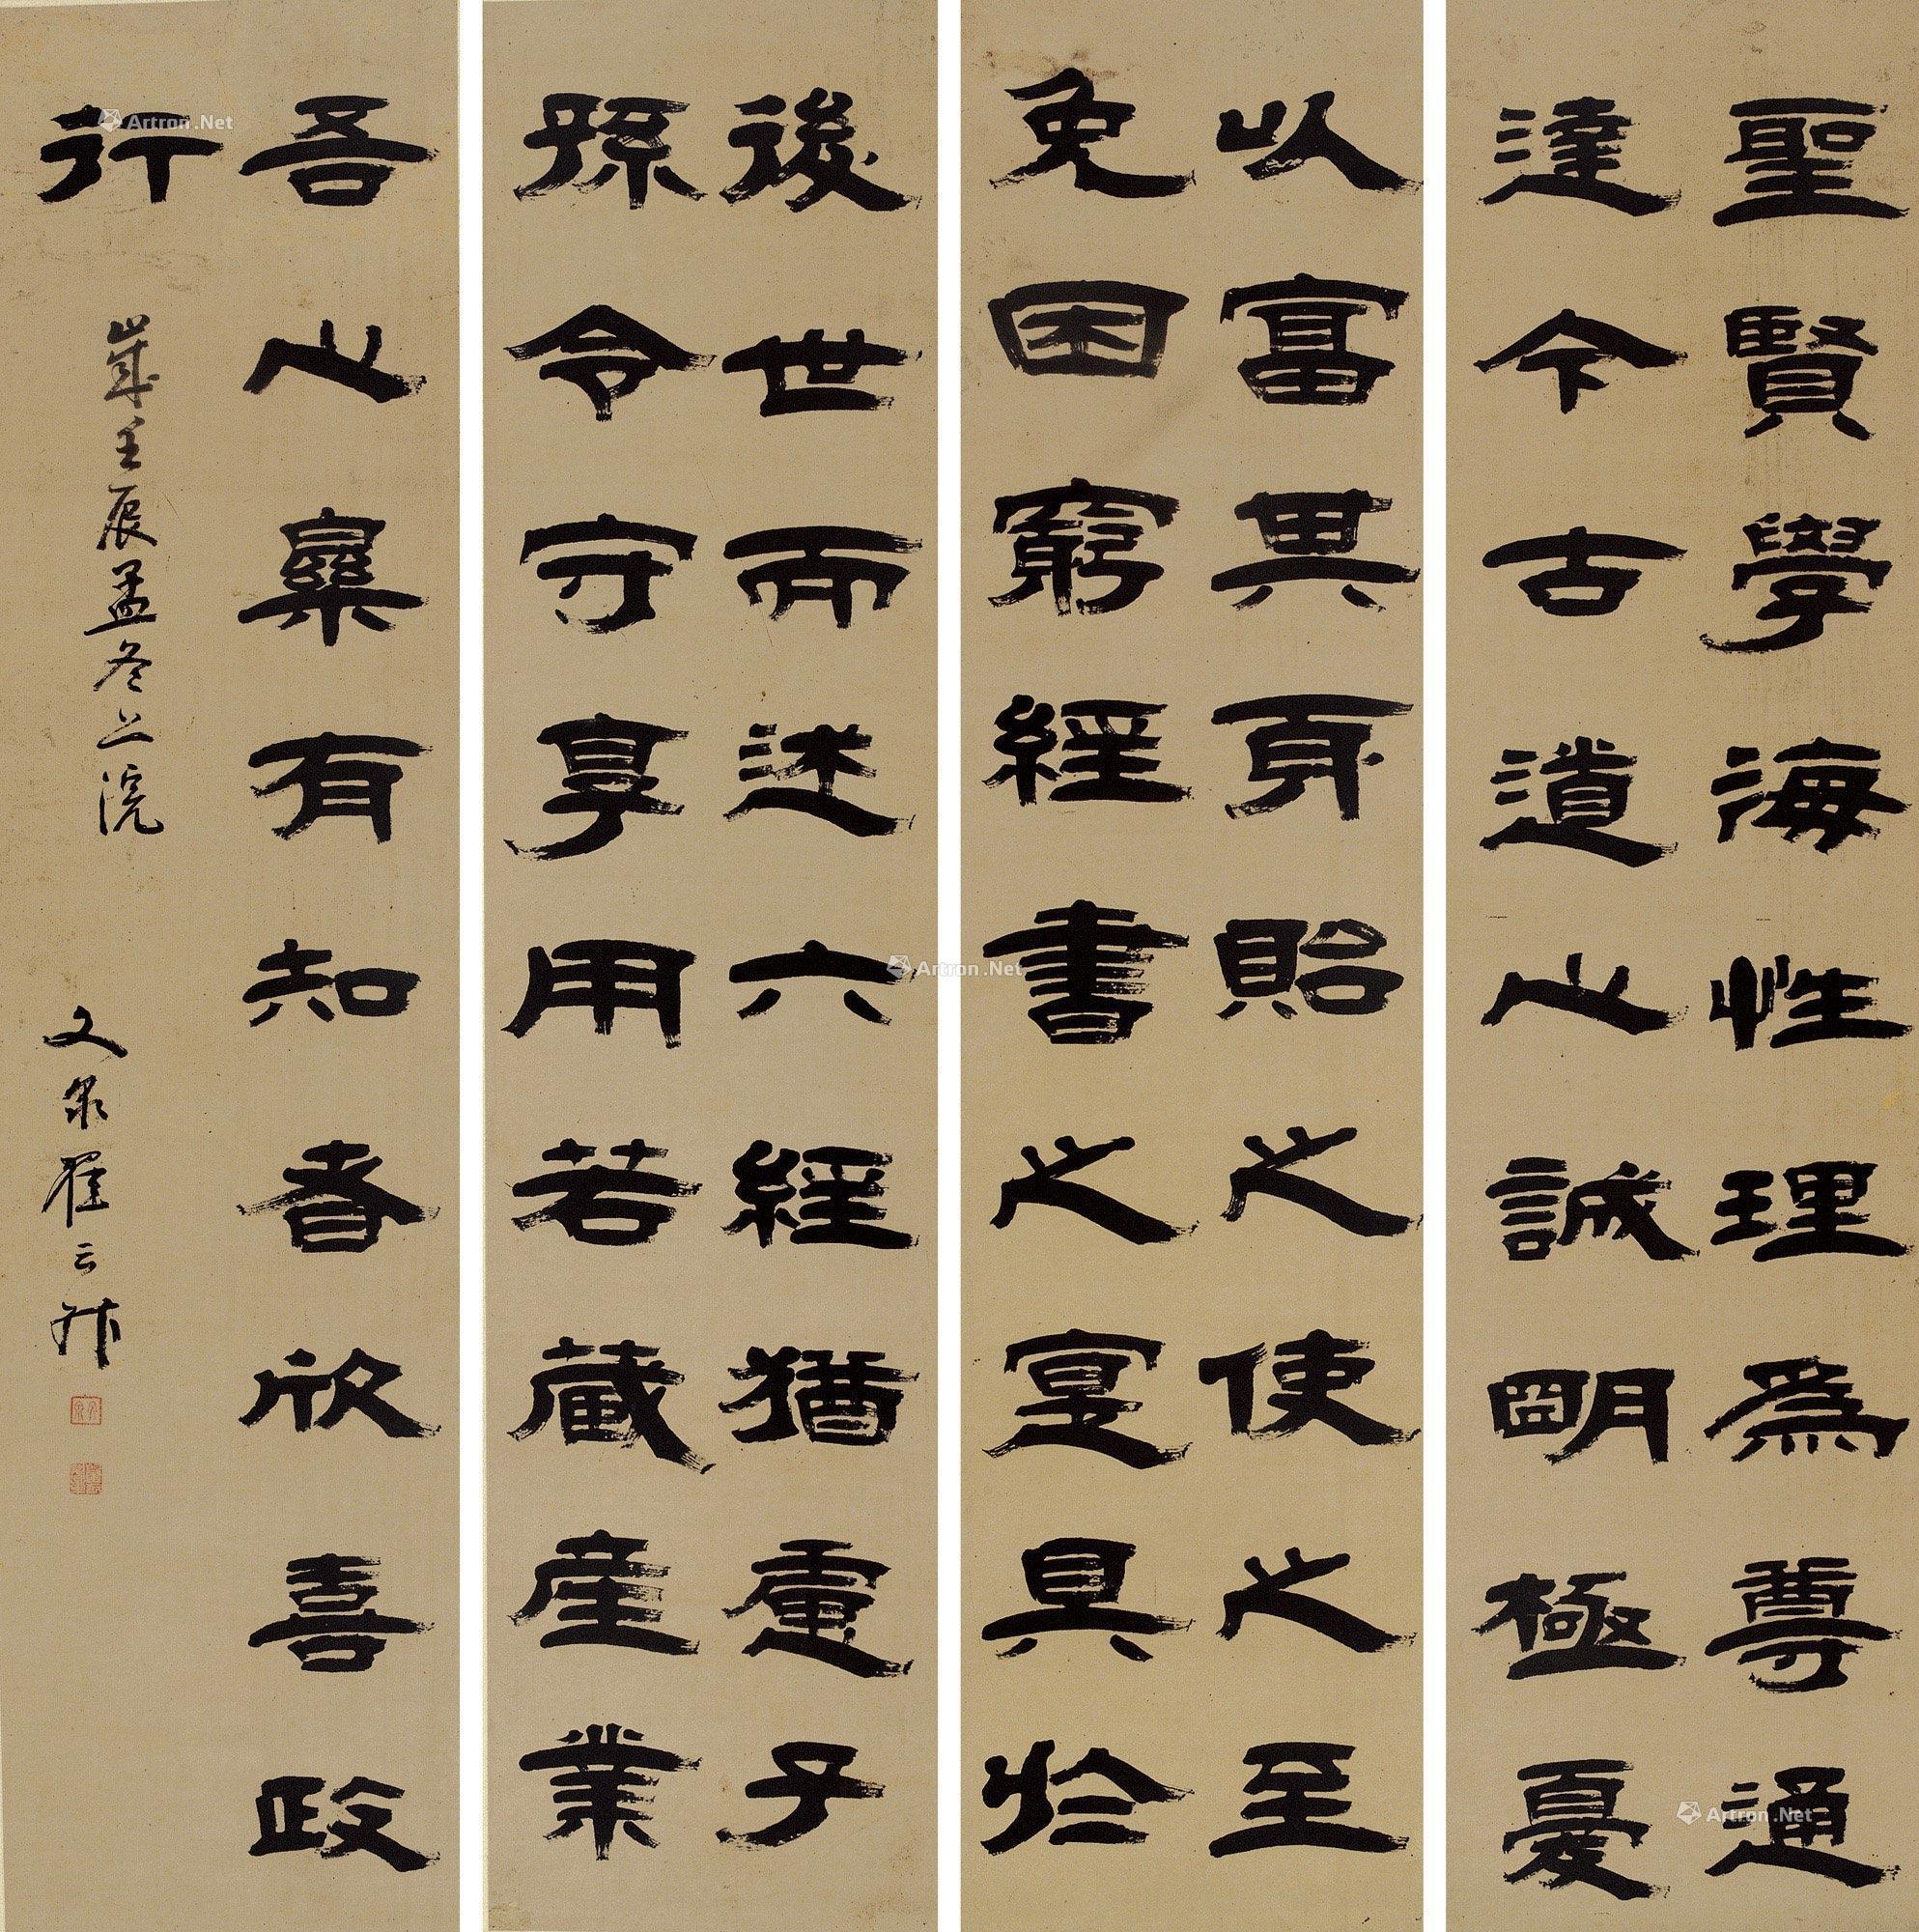 聖賢學海性理為尊通
達今古道心誠明極憂
以富其身貽之使之至
免困窮經書之寔具於
後世而述六經猶慮子
孫令守享用若藏產業
吾心有知者欣喜政
行
歲壬辰孟冬上浣
文泉翟云升
Artron.Net
Artron.Net
Artron.Net